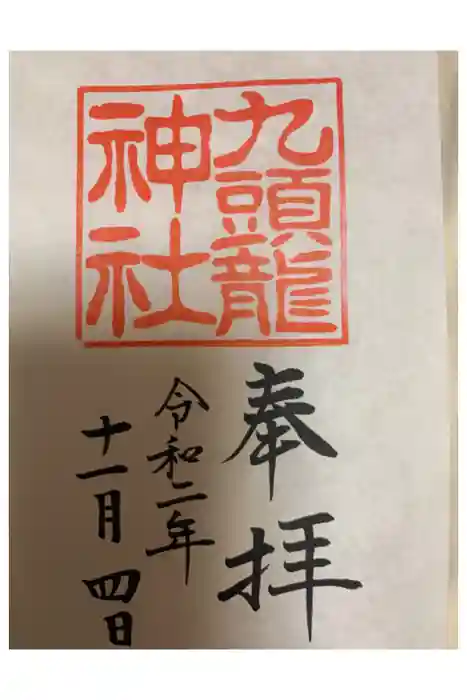 九頭龍
神社
奉拝
令和二年
十一月四日